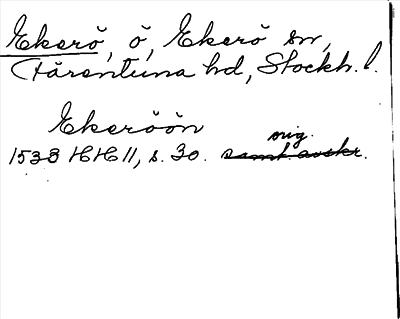 Ekerö, ö, Ekerö sn,
Färentuna hd, Stockh. l.
Ekeröön
orig.
1533 HH 11, s. 30. samt avskr.